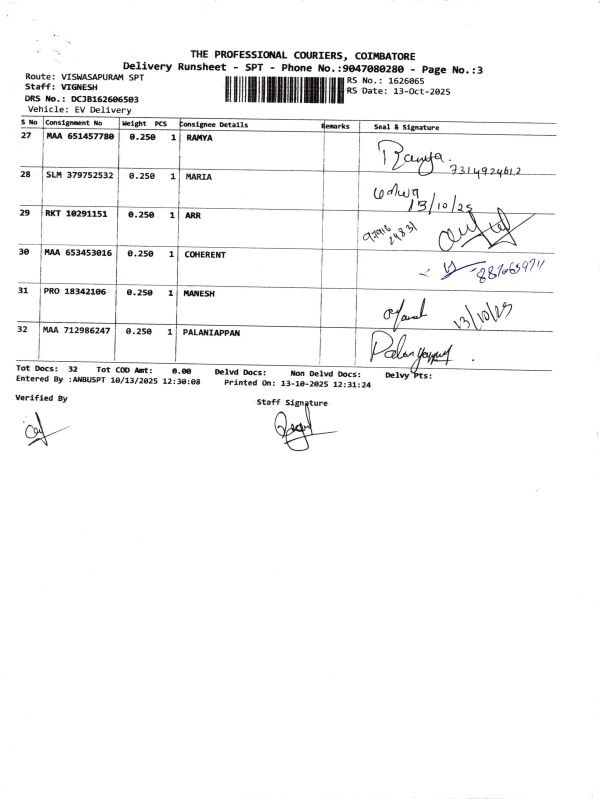 THE PROFESSIONAL COURIERS, COIMBATORE
Delivery Runsheet - SPT - Phone No.:9047080280 - Page No.:3
Route: VISWASAPURAM SPT
RS No.: 1626065
Staff: VIGNESH
RS Date: 13-Oct-2025
DRS No.: DCJB162606503
Vehicle: EV Delivery
S No Consignment No Weight PCS Consignee Details Remarks Seal & Signature
27 MAA 651457780 0.250 1 RAMYA Ramya.
7314924612
28 SLM 379752532 0.250 1 MARIA
13/10/25
29 RKT 10291151 0.250 1 ARR
97916
24831
30 MAA 653453016 0.250 1 COHERENT
31 PRO 18342106 0.250 1 MANESH
13/10/25
32 MAA 712986247 0.250 1 PALANIAPPAN
Tot Docs: 32 Tot COD Amt: 0.00 Delvd Docs: Non Delvd Docs: Delvy Pts:
Entered By :ANBUSPT 10/13/2025 12:30:08 Printed On: 13-10-2025 12:31:24
Verified By
Staff Signature